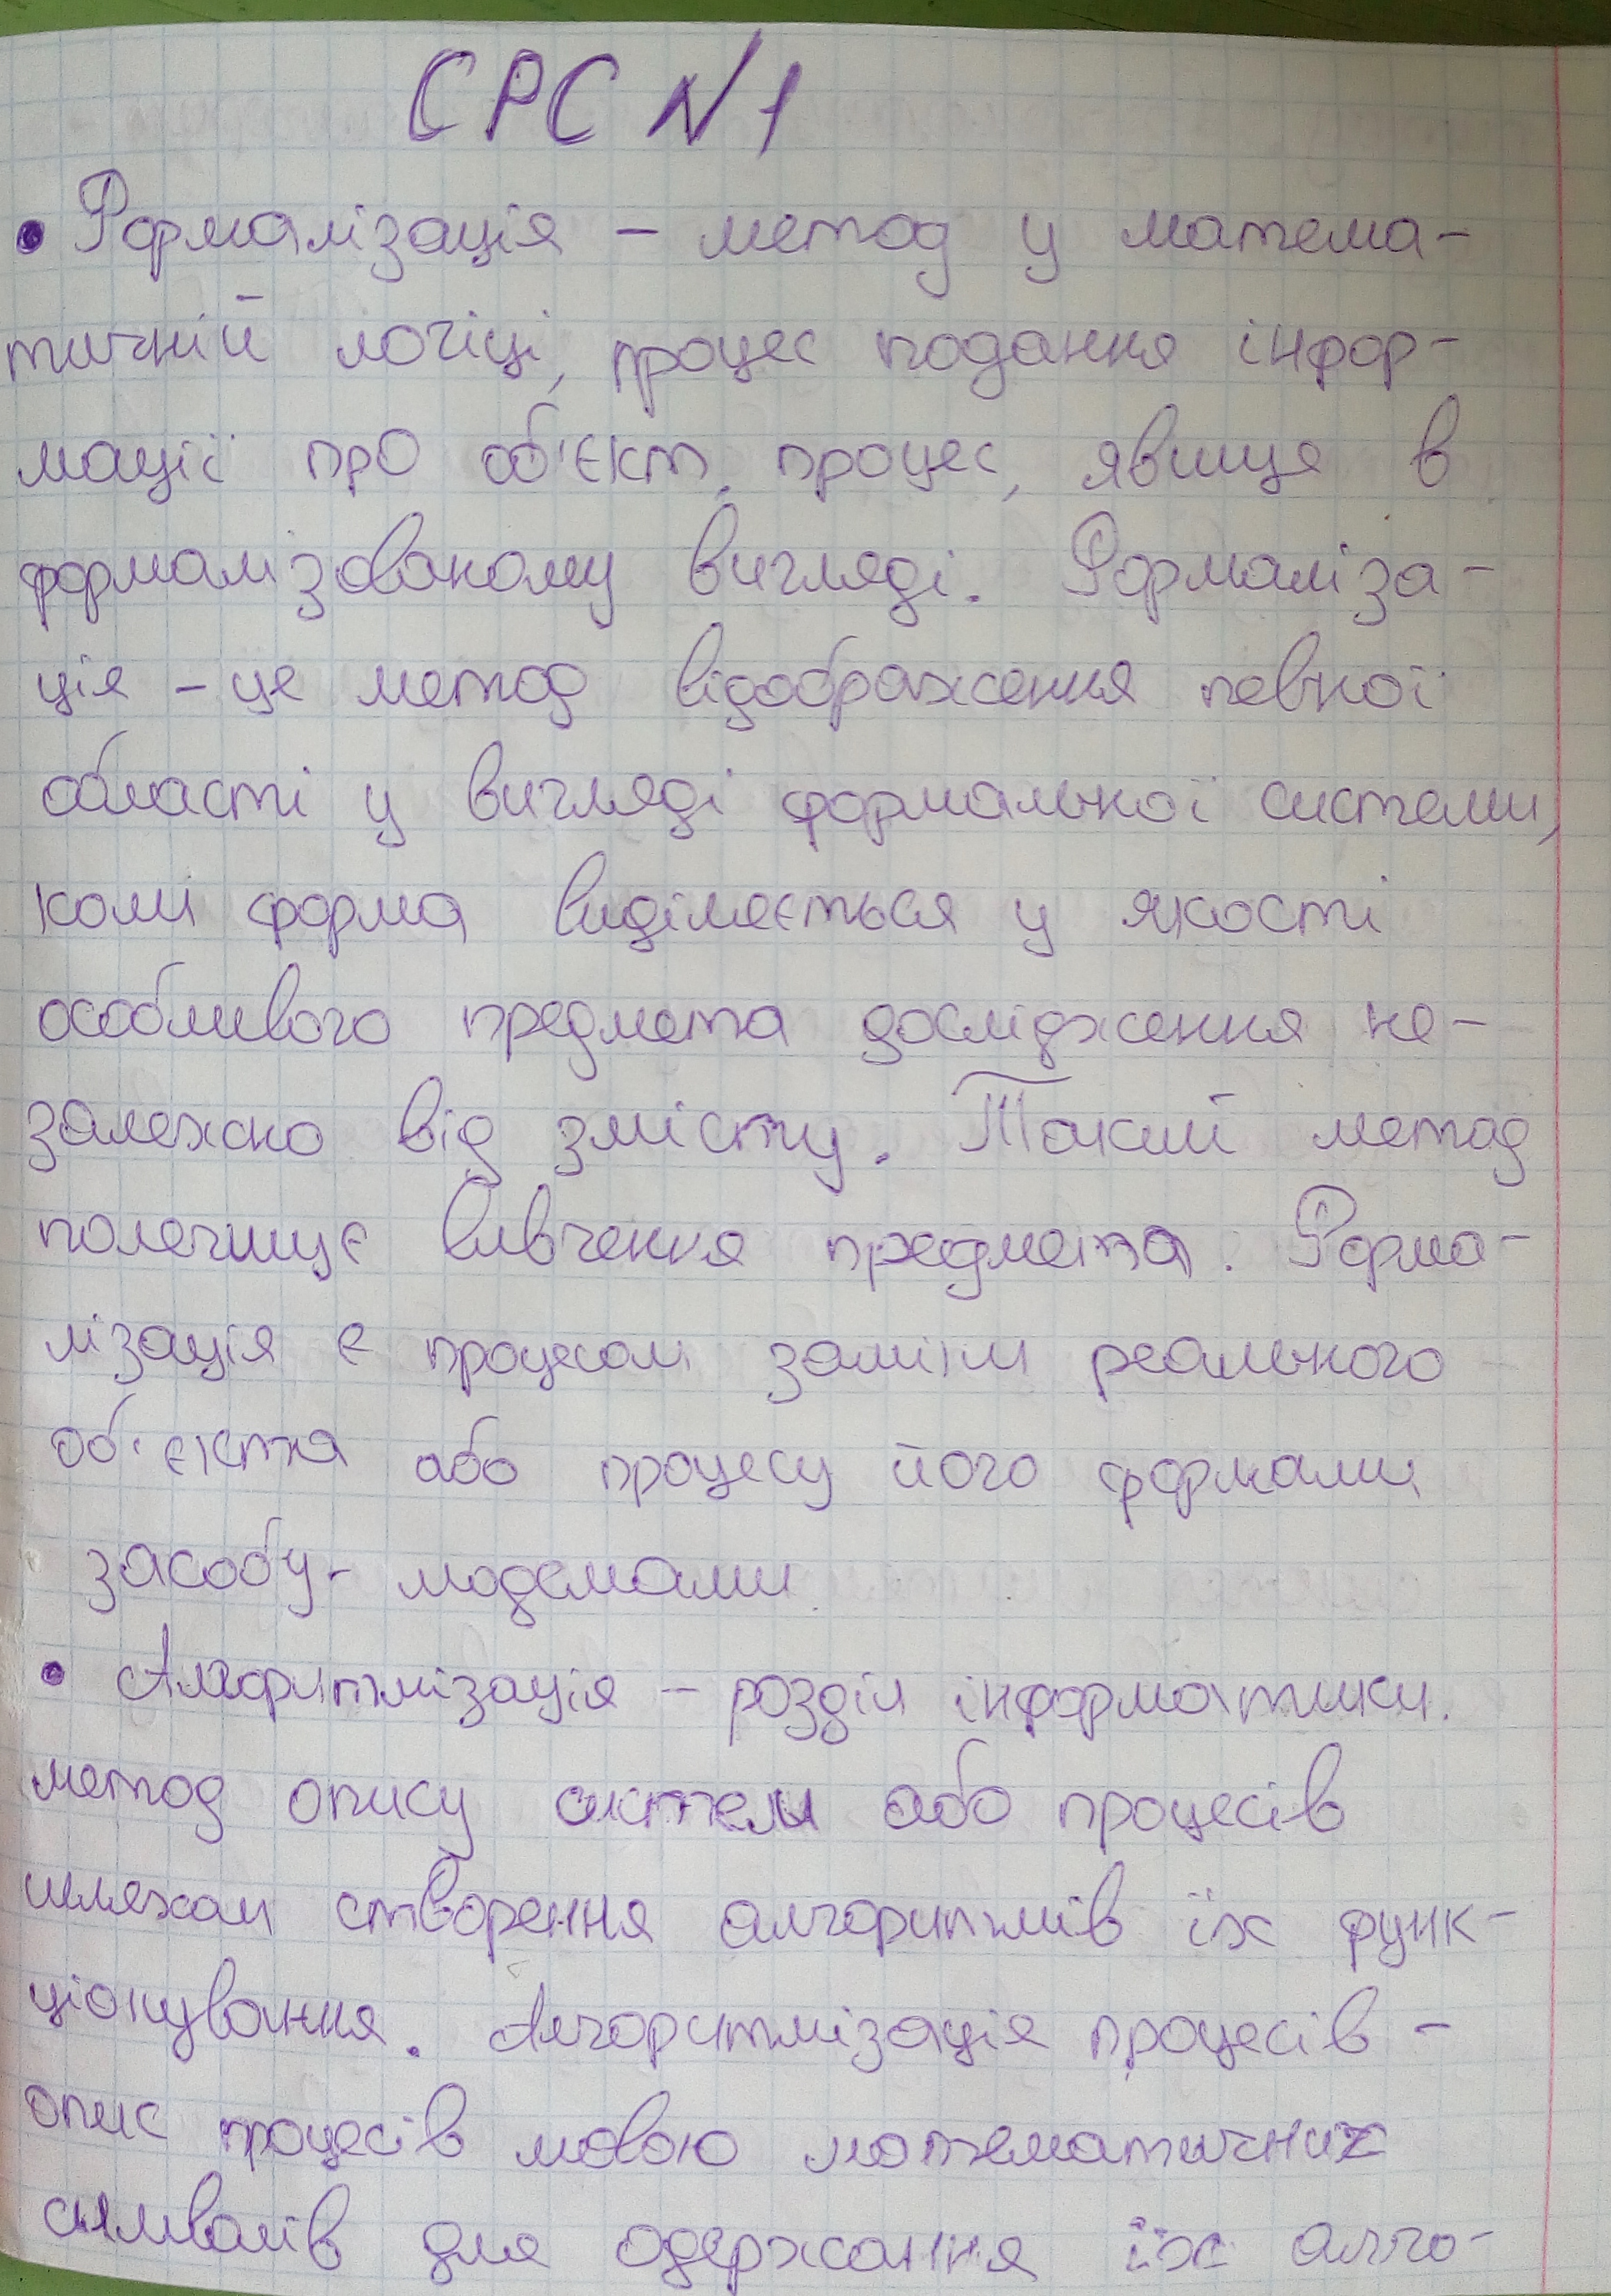 СРС №1
• Формалізація – метод у матема-
тичній логіці, процес подання інфор-
мації про об'єкт, процес, явище в
формалізованому вигляді. Формаліза-
ція – це метод відображення певної
області у вигляді формальної системи,
коли форма виділяється у якості
особливого предмета дослідження не-
залежно від змісту. Такий метод
полегшує вивчення предмета. Форма-
лізація є процесом заміни реального
об'єкта або процесу його формами
засобу- моделями
• Алгоритмізація – розділ інформатики.
метод опису систем або процесів
шляхом створення алгоритмів їх функ-
ціонування. Алгоритмізація процесів –
опис процесів мовою математичних
символів для одержання їх алго-